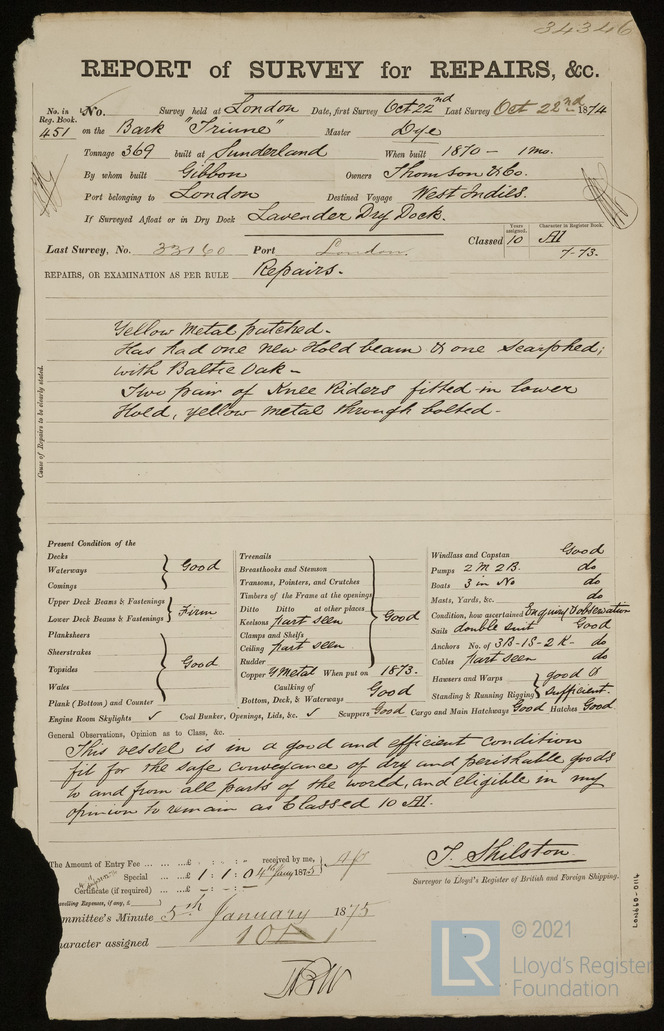 34346
REPORT of SURVEY for REPAIRS, &c.
No. in Reg. Book. 451
No. Survey held at London Date, first Survey Oct 22nd Last Survey Oct 22nd 1874
on the Bark "Triune" Master Dye
Tonnage 369 built at Sunderland When built 1870 - 1 mo.
By whom built Gibbon Owners Thomson & Co.
Port belonging to London Destined Voyage West Indies.
If Surveyed Afloat or in Dry Dock Lavender Dry Dock.
Last Survey, No. 33160 Port London. Classed Years assigned. 10 Character in Register Book. A1
7-73.
REPAIRS, OR EXAMINATION AS PER RULE Repairs.
Cause of Repairs to be clearly stated.
Yellow Metal patched.
Has had one new Hold beam & one scarphed;
with Baltic Oak -
Two pair of Knee Riders fitted in lower
Hold, yellow metal through bolted -
Present Condition of the
Decks
Waterways
Comings
Good
Upper Deck Beams & Fastenings
Lower Deck Beams & Fastenings
Firm
Planksheers
Sheerstrakes
Topsides
Wales
Plank (Bottom) and Counter
Good
Treenails
Breasthooks and Stemson
Transoms, Pointers, and Crutches
Timbers of the Frame at the openings
Ditto Ditto at other places
Keelsons part seen
Clamps and Shelfs
Ceiling part seen
Rudder
Good
Copper Y Metal When put on 1873.
Caulking of
Bottom, Deck, & Waterways Good
Windlass and Capstan Good
Pumps 2 M 2 B. do
Boats 3 in No do
Masts, Yards, &c. do
Condition, how ascertained Enquiry & observation
Sails double suit Good
Anchors No. of 3B-1S-2K- do
Cables part seen do
Hawsers and Warps
Standing & Running Rigging
good & sufficient.
Engine Room Skylights ✓ Coal Bunker, Openings, Lids, &c. ✓ Scuppers Good Cargo and Main Hatchways Good Hatches Good
General Observations, Opinion as to Class, &c.
This vessel is in a good and efficient condition
fit for the safe conveyance of dry and perishable goods
to and from all parts of the world, and eligible in my
opinion to remain as Classed 10 A1.
The Amount of Entry Fee ... ... ... £ : - : - received by me,
Special ... £ 1 : 1 : 0 4th Jany 1875
Certificate (if required) ... £ - : - : -
velling Expenses, (if any, £ )
T. Shilston.
Surveyor to Lloyd's Register of British and Foreign Shipping.
ommittee's Minute 5th January 1875
aracter assigned 10 A 1
Lon660-0116
LR
© 2021
Lloyd's Register
Foundation